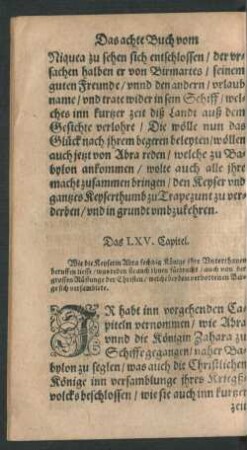 Das achte Buch vom
Niquea zu sehen sich entschlossen / der vr-
sachen halben er von Birmartes / seinem
guten Freunde / vnnd den andern / vrlaub
name / vnd trate wider in sein Schiff / wel-
ches inn kurtzer zeit diß Landt auß dem
Gesichte verlohre / Die wölle nun das
Glück nach jhrem begeren beleyten / wöllen
auch jetzt von Abra reden / welche zu Ba-
bylon ankommen / wolte auch alle jhre
macht zusammen bringen / den Keyser vnd
gantzes Keyserthumb zu Trapezunt zu ver-
derben / vnd in grundt vmbzukehren.
Das LXV. Capitel.
Wie die Keyserin Abra sechtzig Könige jhre Vnterthanen
beruffen liesse /
grossen Rüstunge der Christen / welche
ge sich versamblete.
IR habt inn vorgehenden Ca-
piteln vernommen / wie Abra
vnnd die Königin Zahara zu
Schiffe gegangen / naher Ba-
bylon zu seglen / was auch die Christlichen
Könige inn versamblunge jhres Kriegß-
volcks beschlossen / wie sie auch inn kurtzer
zeit